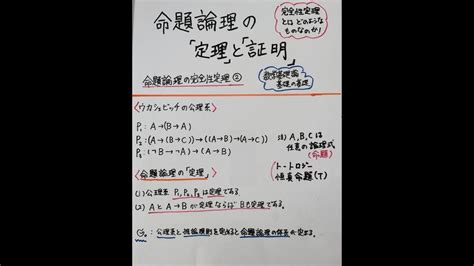 命題論理の
「定理」と「証明」
完全性定理
とは どのような
ものなのか!
命題論理の完全性定理②
数学基礎論
基礎の基礎
<ウカシェビッチの公理系>
P₁: A→(B→A)
P₂: (A→(B→C))→((A→B)→(A→C))
P₃: (¬B→¬A)→(A→B)
注) A,B,Cは
任意の論理式
(命題)
<命題論理の「定理」>
トートロジー
恒真命題(T)
(1) 公理系 P₁,P₂,P₃は定理である
(2) AとA→Bが定理ならばBも定理である
:公理系と推論規則を定めると命題論理の体系が定まる。